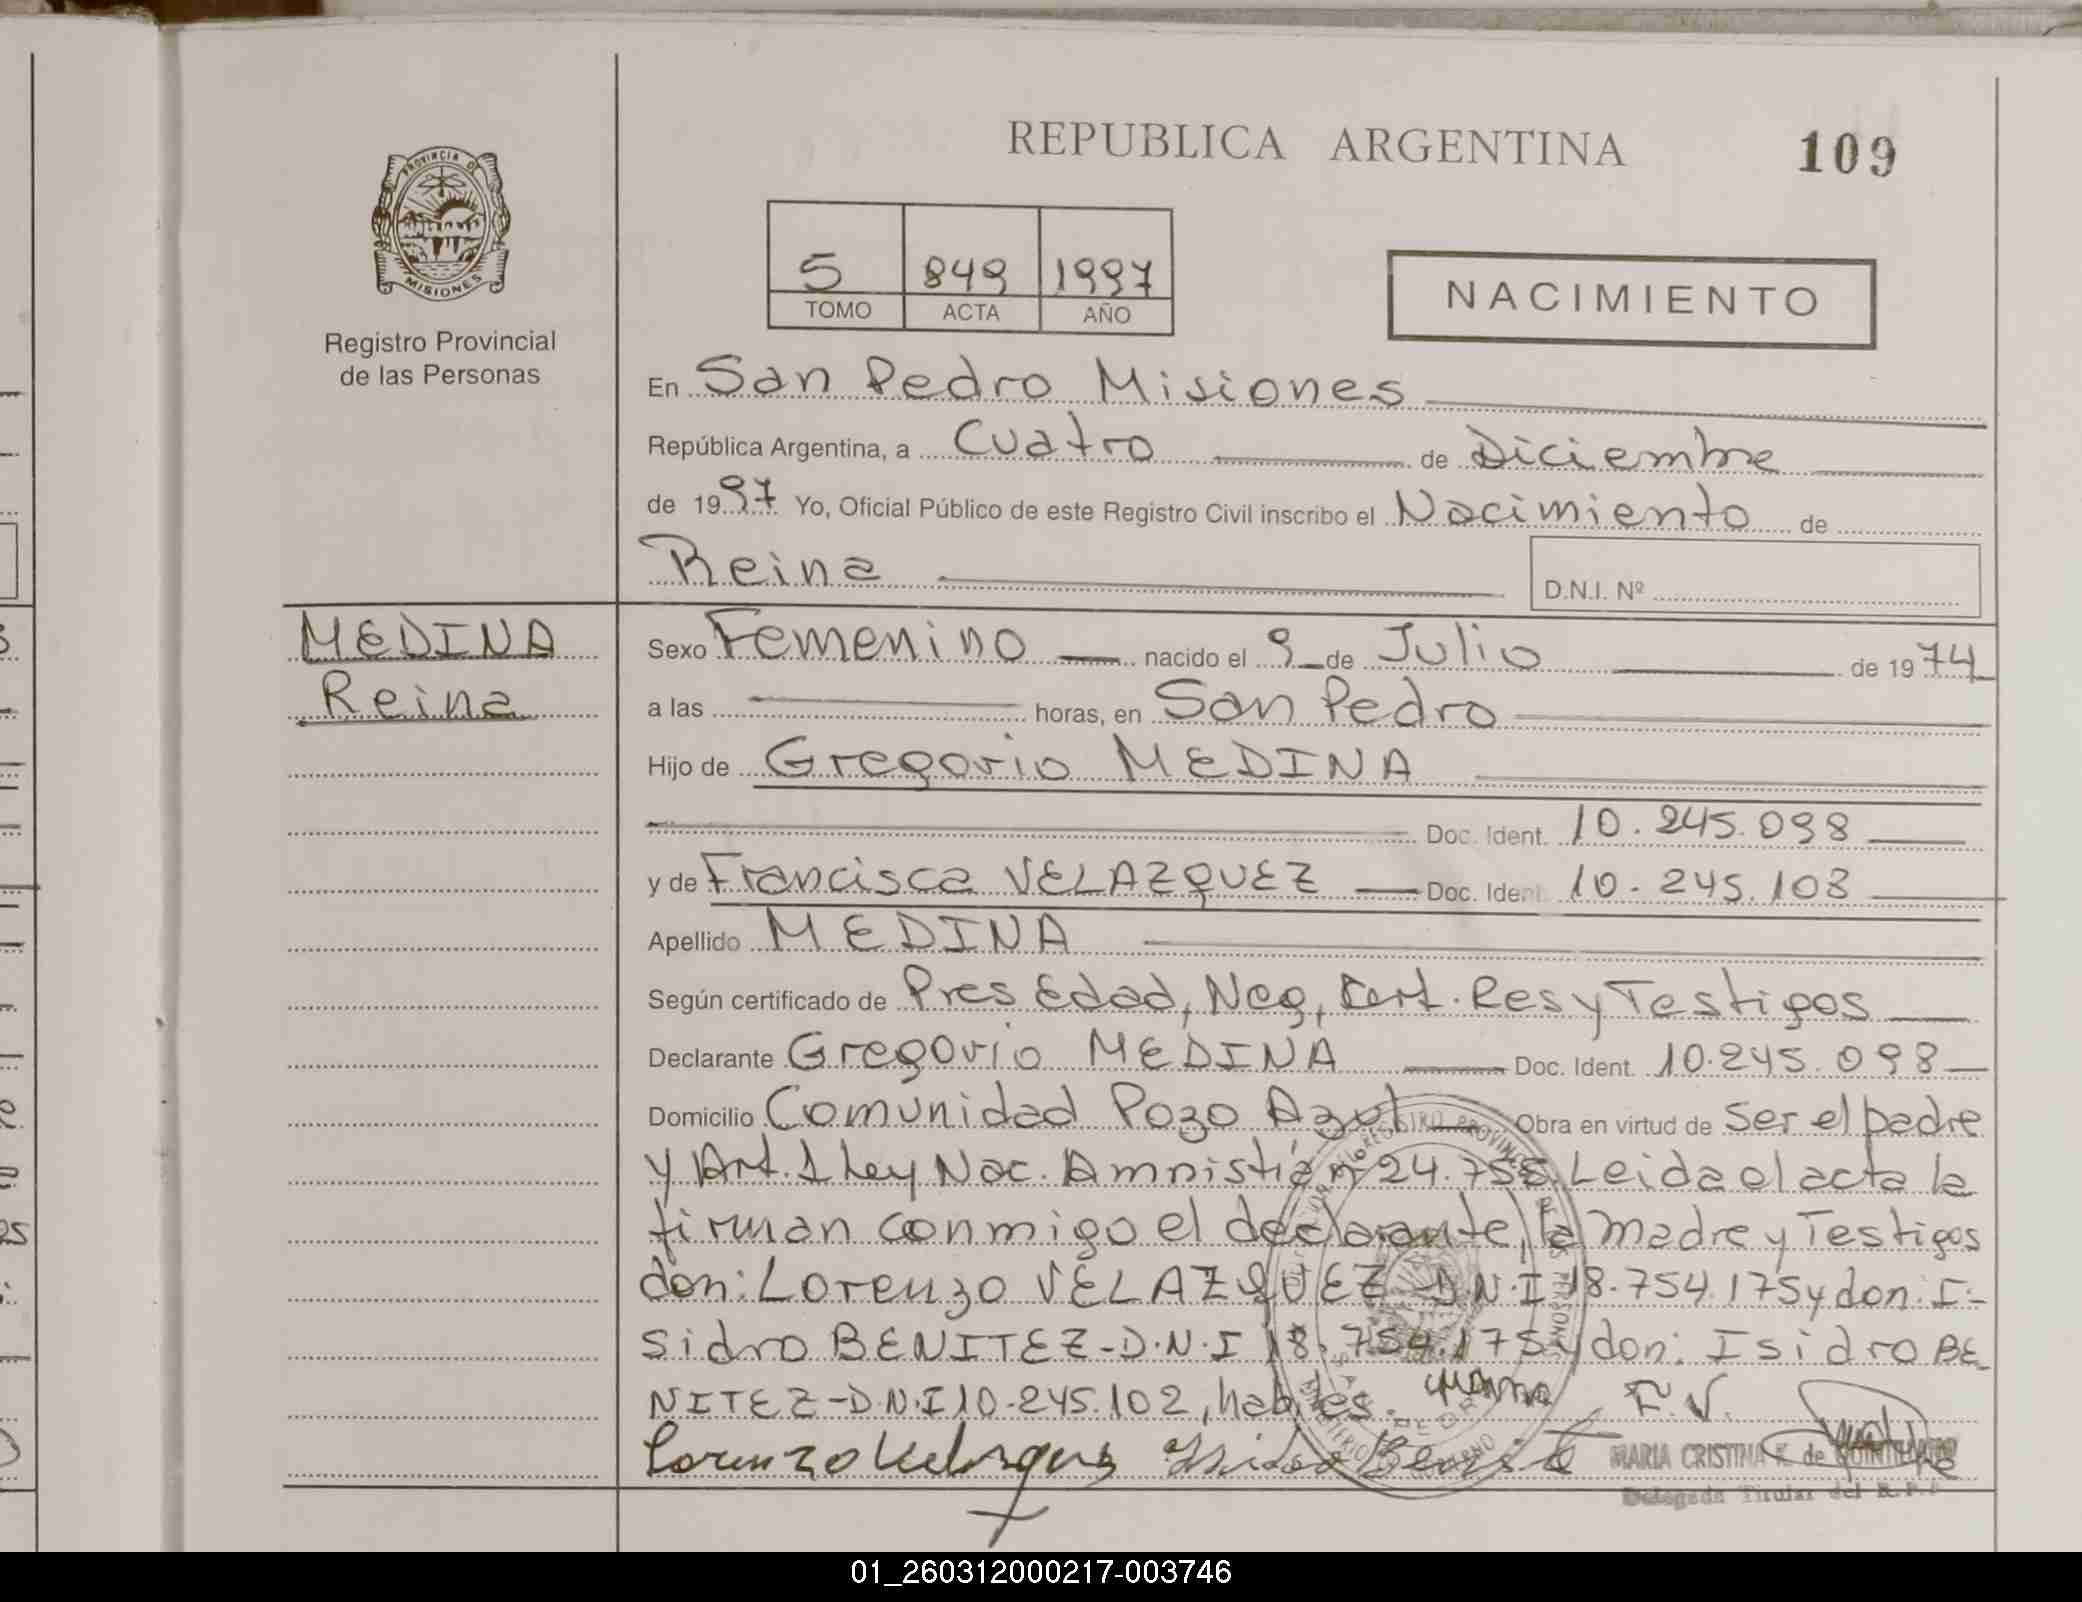 REPUBLICA ARGENTINA
109
PROVINCIA DE
MISIONES
Registro Provincial
de las Personas
5 849 1997
TOMO ACTA AÑO
NACIMIENTO
En San Pedro Misiones
República Argentina, a Cuatro de Diciembre
de 1997 Yo, Oficial Público de este Registro Civil inscribo el Nacimiento de
Reina D.N.I. Nº
MEDINA
Reina
Sexo Femenino nacido el 9 de Julio de 1974
a las horas, en San Pedro
Hijo de Gregorio MEDINA
Doc. Ident. 10.245.098
y de Francisca VELAZQUEZ Doc. Ident. 10.245.103
Apellido MEDINA
Según certificado de Pres Edad, Neg, Cert. Res y Testigos
Declarante Gregorio MEDINA Doc. Ident. 10.245.098
Domicilio Comunidad Pozo Azul Obra en virtud de Ser el padre
y Art. 1 Ley Nac. Amnistía 24.755. Leida el acta la
firman conmigo el declarante, la madre y Testigos
don: Lorenzo VELAZQUEZ D.N.I 18.754.175 y don: I-
sidro BENITEZ-D.N.I 18.754.175 y don: Isidro BE
NITEZ-D.N.I 10.245.102, habiles.
F.V.
Lorenzo Velasques Isidro Benite
MARIA CRISTINA K. de
Delegada Titular del R.P.P.
01_260312000217-003746